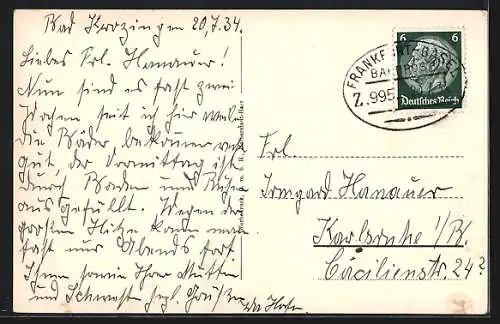 Bad Krozingen 20.7.34.
Liebes Frl. Hanauer!
Nun sind es fast zwei
Wochen seit ich hier weile
die Bäder bekommen mir
gut, der Vormittag ist
durch Baden und Ruhen
ausgefüllt. Wegen der
großen Hitze kann man
fast nur Abends fort
Ihnen sowie Ihrer Mutter
und Schwester herzl. Grüße
6 6
Deutsches Reich
FRANKFURT-BASEL
BAHNPOST
Z. 995
Frl.
Irmgard Hanauer
Karlsruhe i/B.
Cäcilienstr. 24?